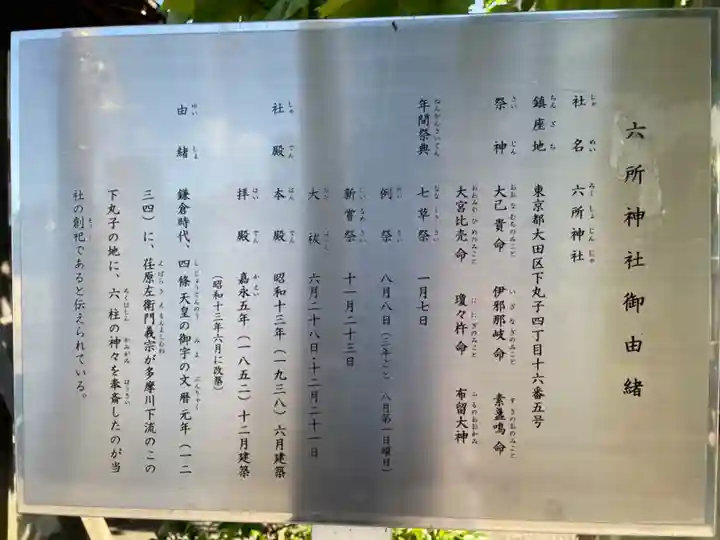 六所神社御由緒
社名 六所神社
鎮座地 東京都大田区下丸子四丁目十六番五号
祭神 大己貴命 伊邪那岐命 素盞鳴命
大宮比売命 瓊々杵命 布留大神
年間祭典 七草祭 一月七日
例祭 八月八日(三年ごと 八月第一日曜日)
新嘗祭 十一月二十三日
大祓 六月二十八日・十二月二十一日
社殿 本殿 昭和十三年(一九三八)六月建築
拝殿 嘉永五年(一八五二)十二月建築
(昭和十三年六月に改築)
由緒 鎌倉時代、四條天皇の御宇の文暦元年(一二
三四)に、荏原左衛門義宗が多摩川下流のこの
下丸子の地に、六柱の神々を奉斎したのが当
社の創祀であると伝えられている。